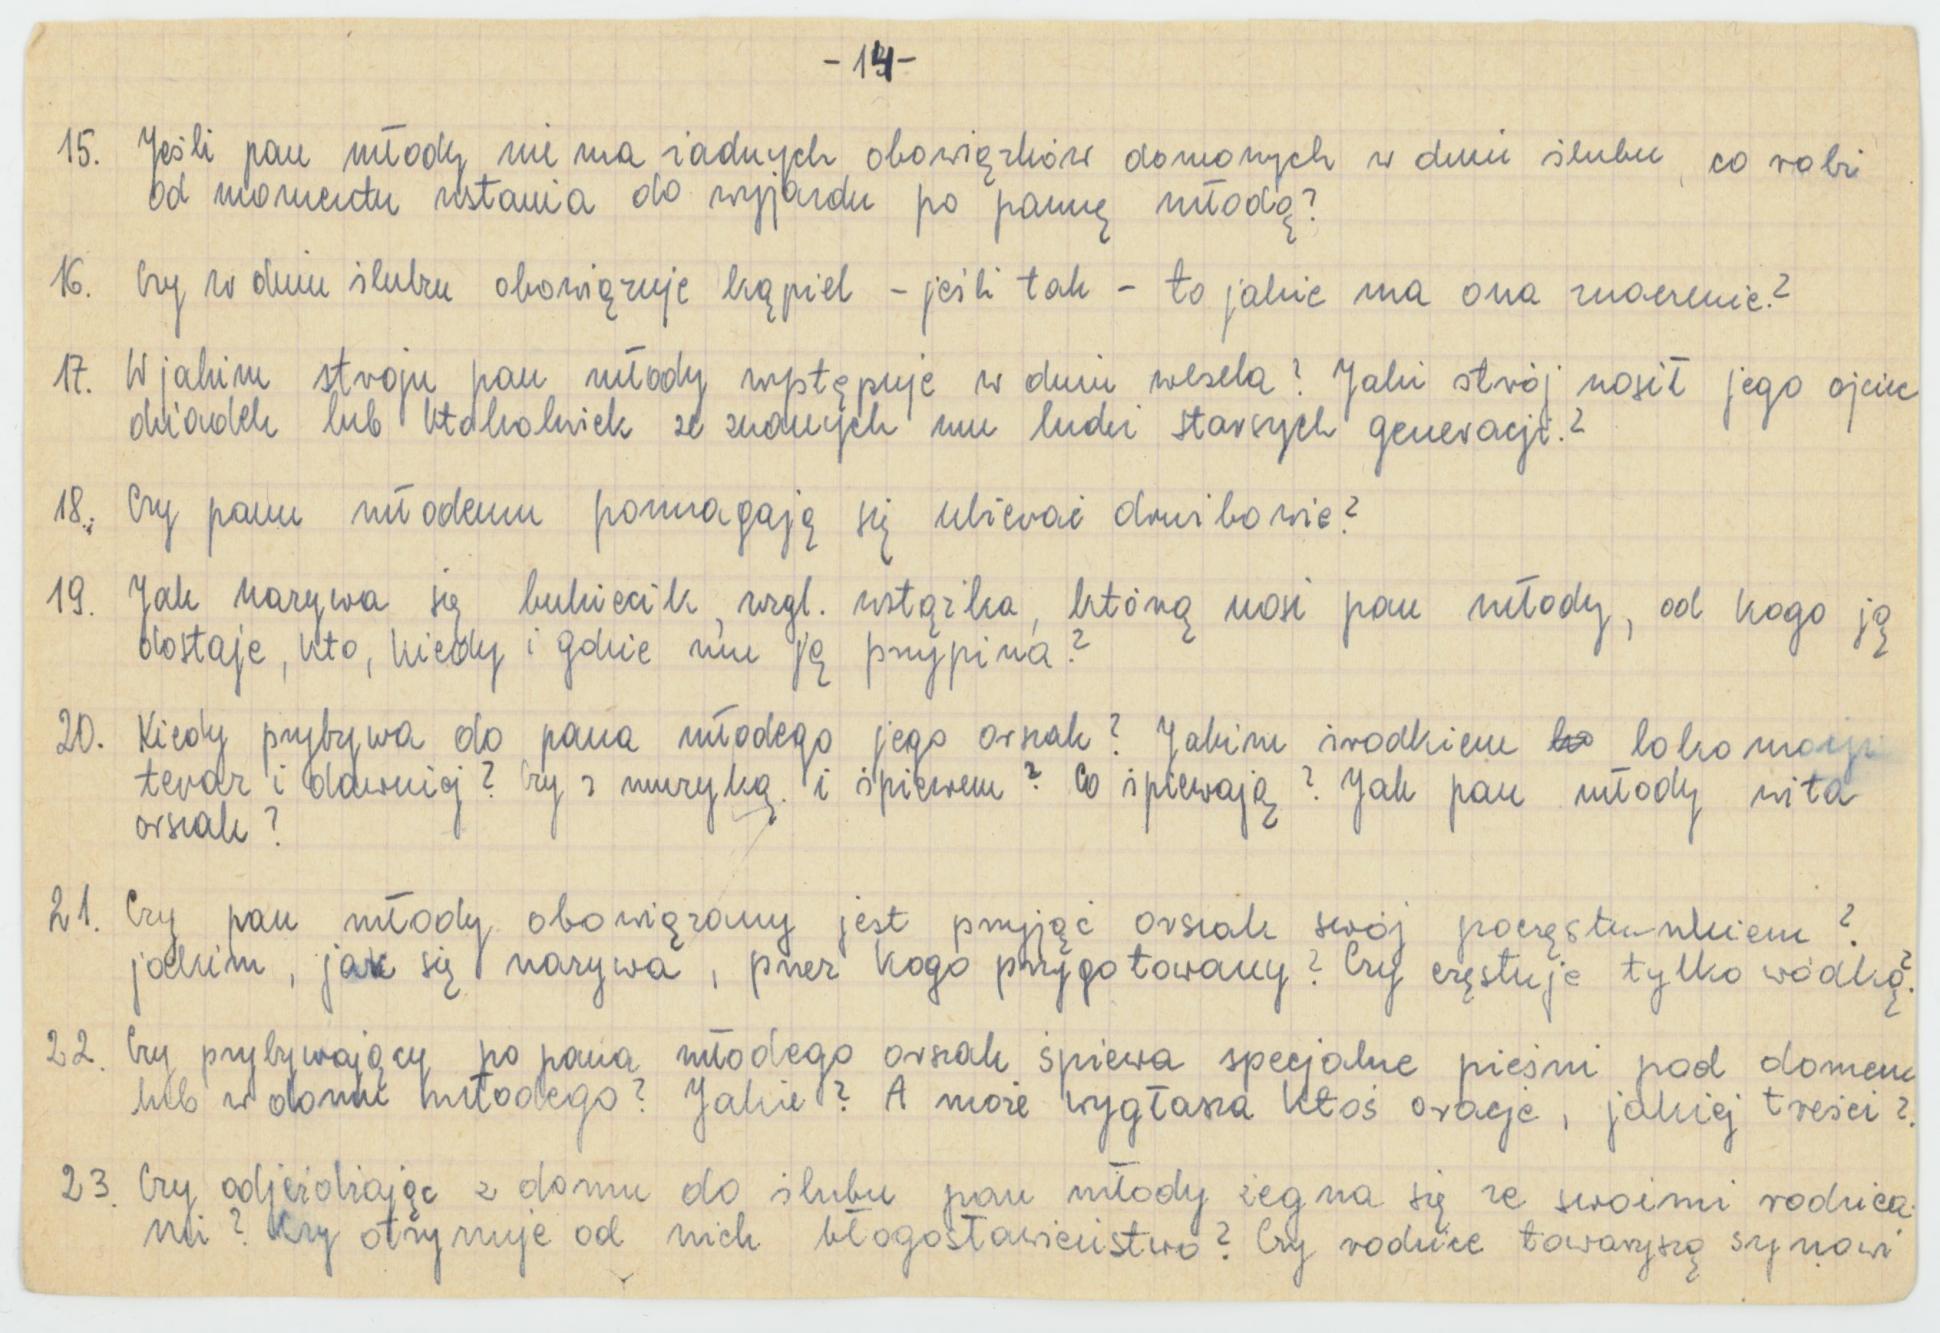 - 14 -
15. Jeśli pan młody nie ma żadnych obowiązków domowych w dniu ślubu, co robi
od momentu wstania do wyjazdu po pannę młodą?
16. Czy w dniu ślubu obowiązuje kąpiel - jeśli tak - to jakie ma ona znaczenie?
17. W jakim stroju pan młody występuje w dniu wesela? Jaki strój nosił jego ojciec
dziadek lub ktokolwiek ze znanych mu ludzi starszych generacji?
18. Czy panu młodemu pomagają się ubierać drużbowie?
19. Jak nazywa się bukiecik, wzgl. wstążka, którą nosi pan młody, od kogo ją
dostaje, kto, kiedy i gdzie mu ją przypina?
20. Kiedy przybywa do pana młodego jego orszak? Jakim środkiem lokomocji
teraz i dawniej? Czy z muzyką i śpiewem? Co śpiewają? Jak pan młody wita
orszak?
21. Czy pan młody obowiązany jest przyjąć orszak swój poczęstunkiem?
jakim, jak się nazywa, przez kogo przygotowany? Czy częstuje tylko wódką?
22. Czy przybywający po pana młodego orszak śpiewa specjalne pieśni pod domem
lub w domu młodego? Jakie? A może wygłasza ktoś oracje, jakiej treści?
23. Czy odjeżdżając z domu do ślubu pan młody żegna się ze swoimi rodzica-
mi? Czy otrzymuje od nich błogosławieństwo? Czy rodzice towarzyszą synowi